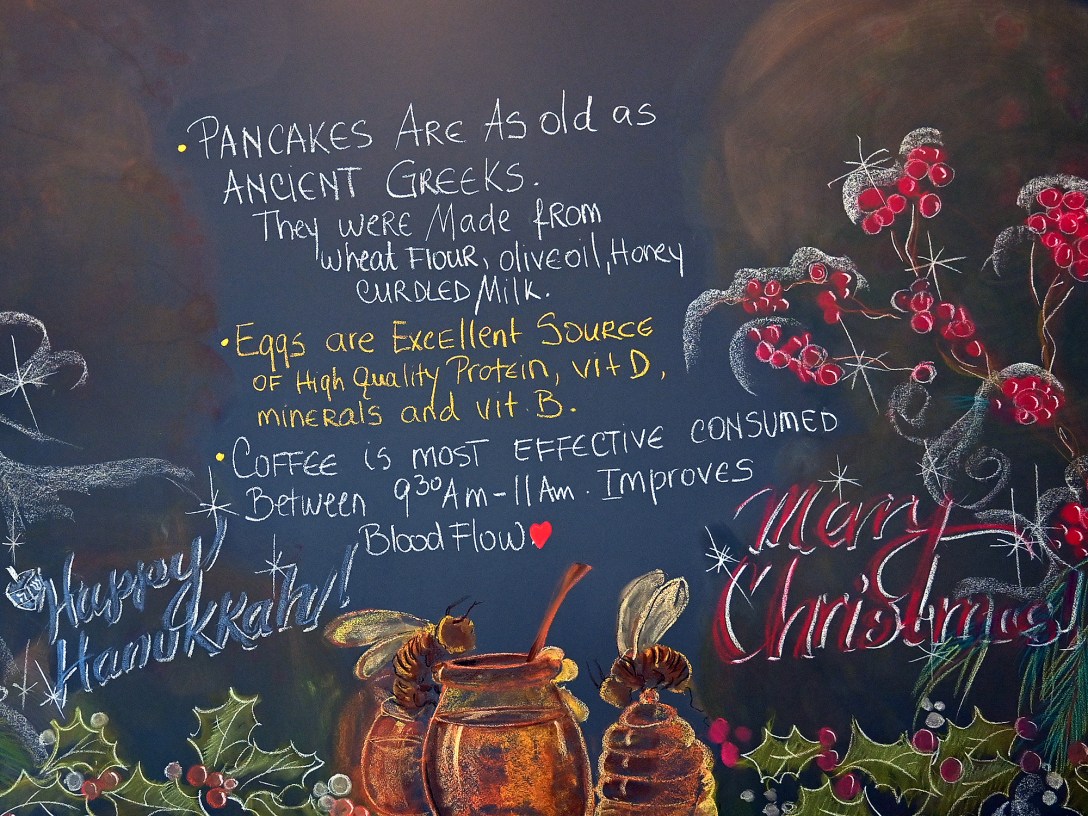 • PANCAKES ARE AS old as
ANCIENT GREEKS.
They WERE Made FROM
wheat FLOUR, olive oil, Honey
CURDLED/Milk.
• Eggs are Excellent SOURCE
OF High Quality Protein, vit D,
minerals and vit B.
• COFFEE is MOST EFFECTIVE CONSUMED
Between 9³⁰Am-11Am. Improves
Blood Flow♥
Happy
Hanukkah!
Merry
Christmas!